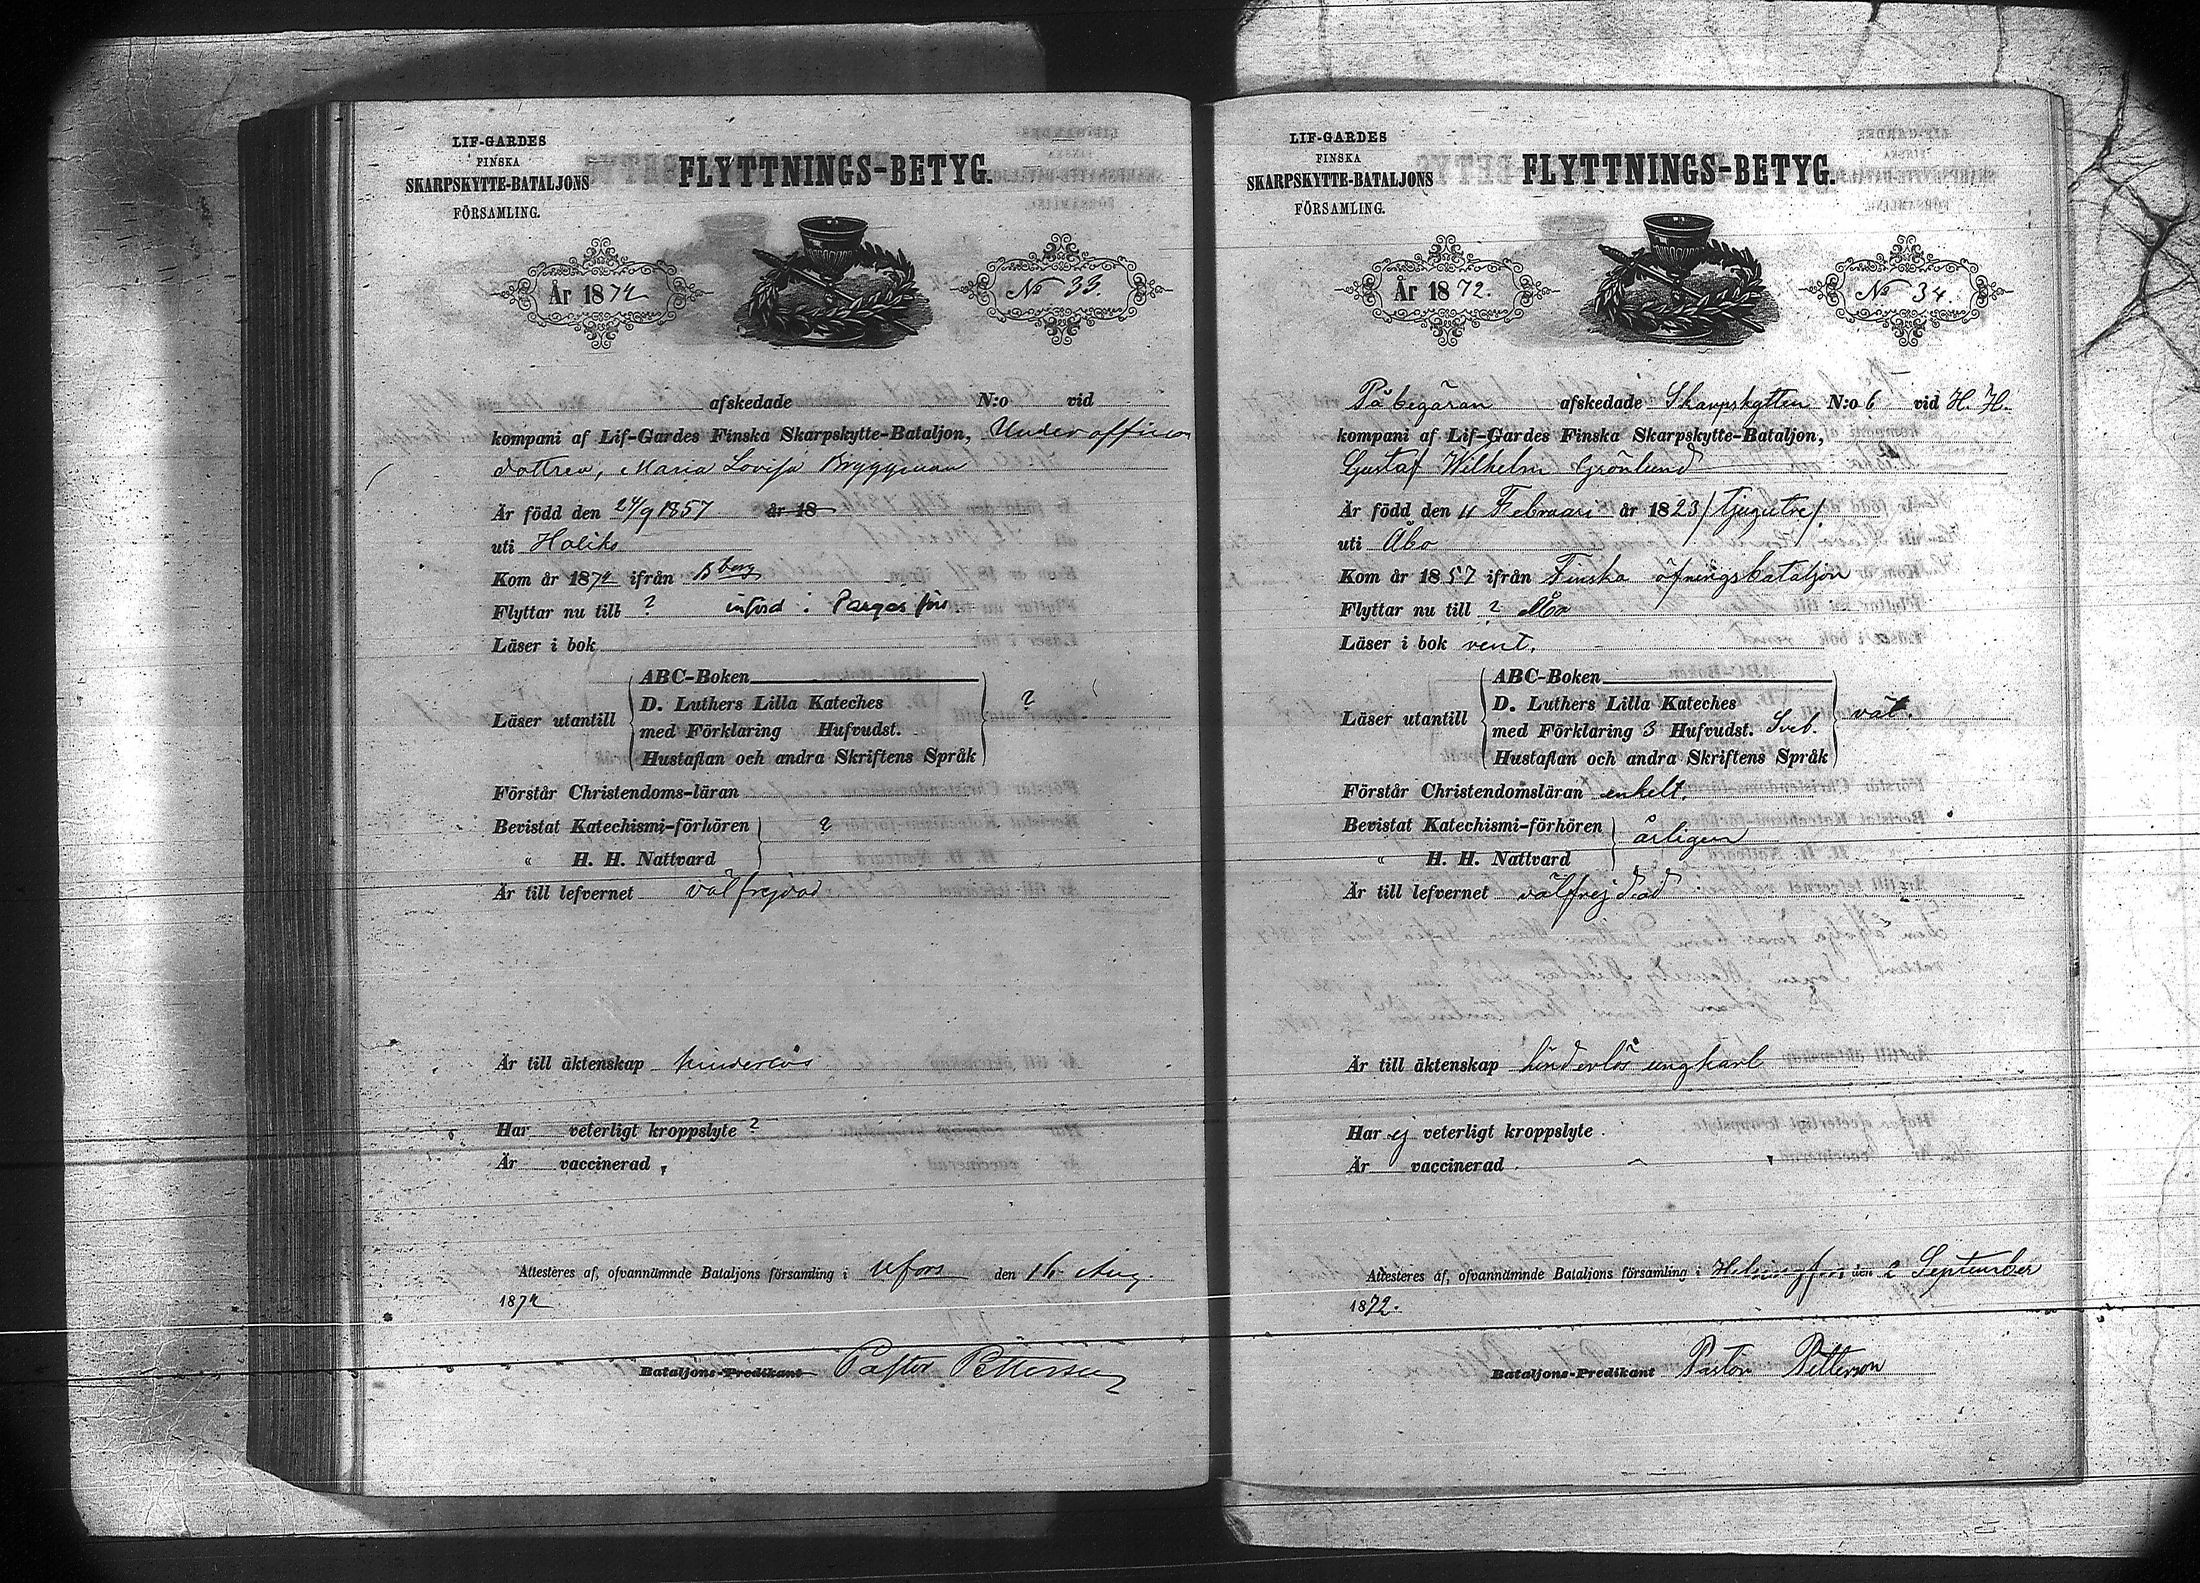 LIF-GARDES
FINSKA
SKARPSKYTTE-BATALJONS
FÖRSAMLING.
FLYTTNINGS-BETYG.
År 1872
No 33.
afskedade N:o vid
kompani af Lif-Gardes Finska Skarpskytte-Bataljon, Underofficers
dottren, Maria Lovisa Bryggman
Är född den 24/9 1857 år 18
uti Haliko
Kom år 1872 ifrån Bberg
Flyttar nu till ? införd i Pargas förs
Läser i bok
ABC-Boken
D. Luthers Lilla Kateches
Läser utantill ?
med Förklaring Hufvudst.
Hustaflan och andra Skriftens Språk
Förstår Christendoms-läran
Bevistat Katechismi-förhören ?
" H. H. Nattvard
Är till lefvernet välfrejdad
Är till äktenskap hinderslös
Har veterligt kroppslyte ?
Är vaccinerad,
Attesteres af, ofvannämnde Bataljons församling i Hfors den 16 Aug.
1872
Bataljons-Predikant Pastor Petterson
LIF-GARDES
FINSKA
SKARPSKYTTE-BATALJONS
FÖRSAMLING.
FLYTTNINGS-BETYG.
År 1872.
No 34.
På begäran afskedade Skarpskytten N:o 6 vid H. H.
kompani af Lif-Gardes Finska Skarpskytte-Bataljon,
Gustaf Wilhelm Grönlund
Är född den 11 Februari år 1823 / tjugutre /
uti Åbo
Kom år 1857 ifrån Finska öfningsbataljon
Flyttar nu till ? Åbo
Läser i bok rent.
ABC-Boken
D. Luthers Lilla Kateches
Läser utantill väl.
med Förklaring 3 Hufvudst. Sveb.
Hustaflan och andra Skriftens Språk
Förstår Christendomsläran enkelt.
Bevistat Katechismi-förhören årligen
" H. H. Nattvard
Är till lefvernet välfrejdad
Är till äktenskap hinderlös ungkarl
Har ej veterligt kroppslyte
Är vaccinerad
Attesteres af, ofvannämnde Bataljons församling i Helsingfors den 2 September
1872.
Bataljons-Predikant Pastor Petterson